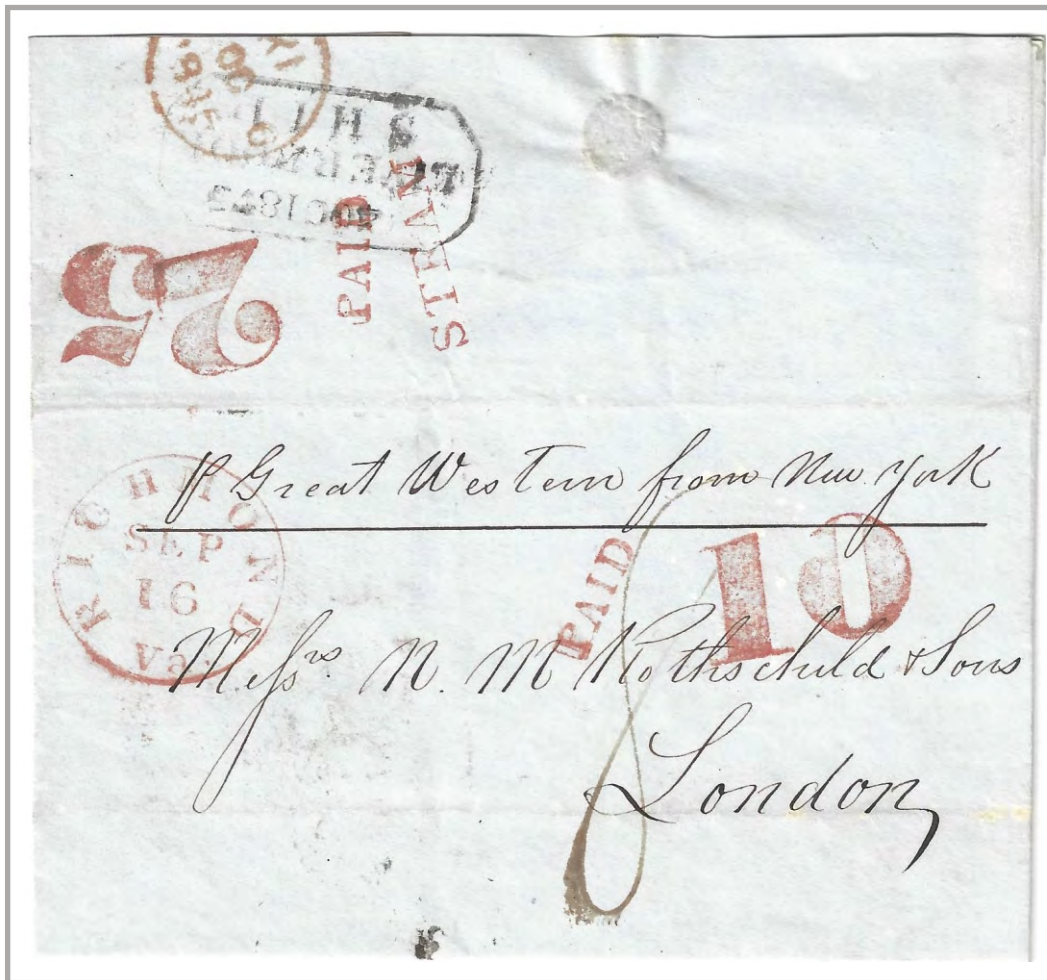 LIVERPOOL
SHIP
25
PAID
STEAM
RICHMOND
SEP
16
Va.
p Great Western from New York
PAID
10
Messrs N. M Rothschild & Sons
London